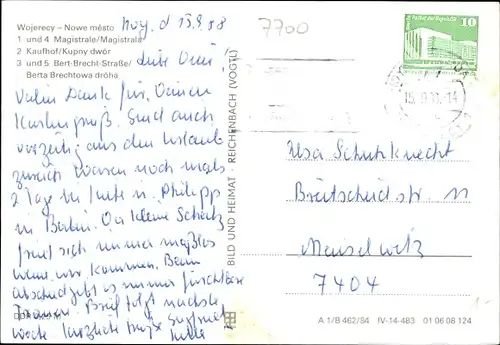 Wojerecy – Nowe město
1 und 4 Magistrale/Magistrala
2 Kaufhof/Kupny dwór
3 und 5 Bert-Brecht-Straße/
Berta Brechtowa dróha
Hoy. d 15.9.88
7700
Liebe Omi!
Vielen Dank für Deinen
Kartengruß. Sind auch
vorzeitig aus dem Urlaub
zurück. Waren noch mals
2 Tage bei u. Philipp
in Berlin. Der kleine Schatz
freut sich immer maßlos
wenn wir kommen. Beim
abschied gibt es immer furchtbare
Brief folgt nächste
Woche Herzliche Grüße
BILD UND HEIMAT · REICHENBACH (VOGTL)
10
Elsa Schutzknecht
Breitscheidstr. 11
Meuselwitz
7404
A 1/B 462/84 IV-14-483 01 06 08 124